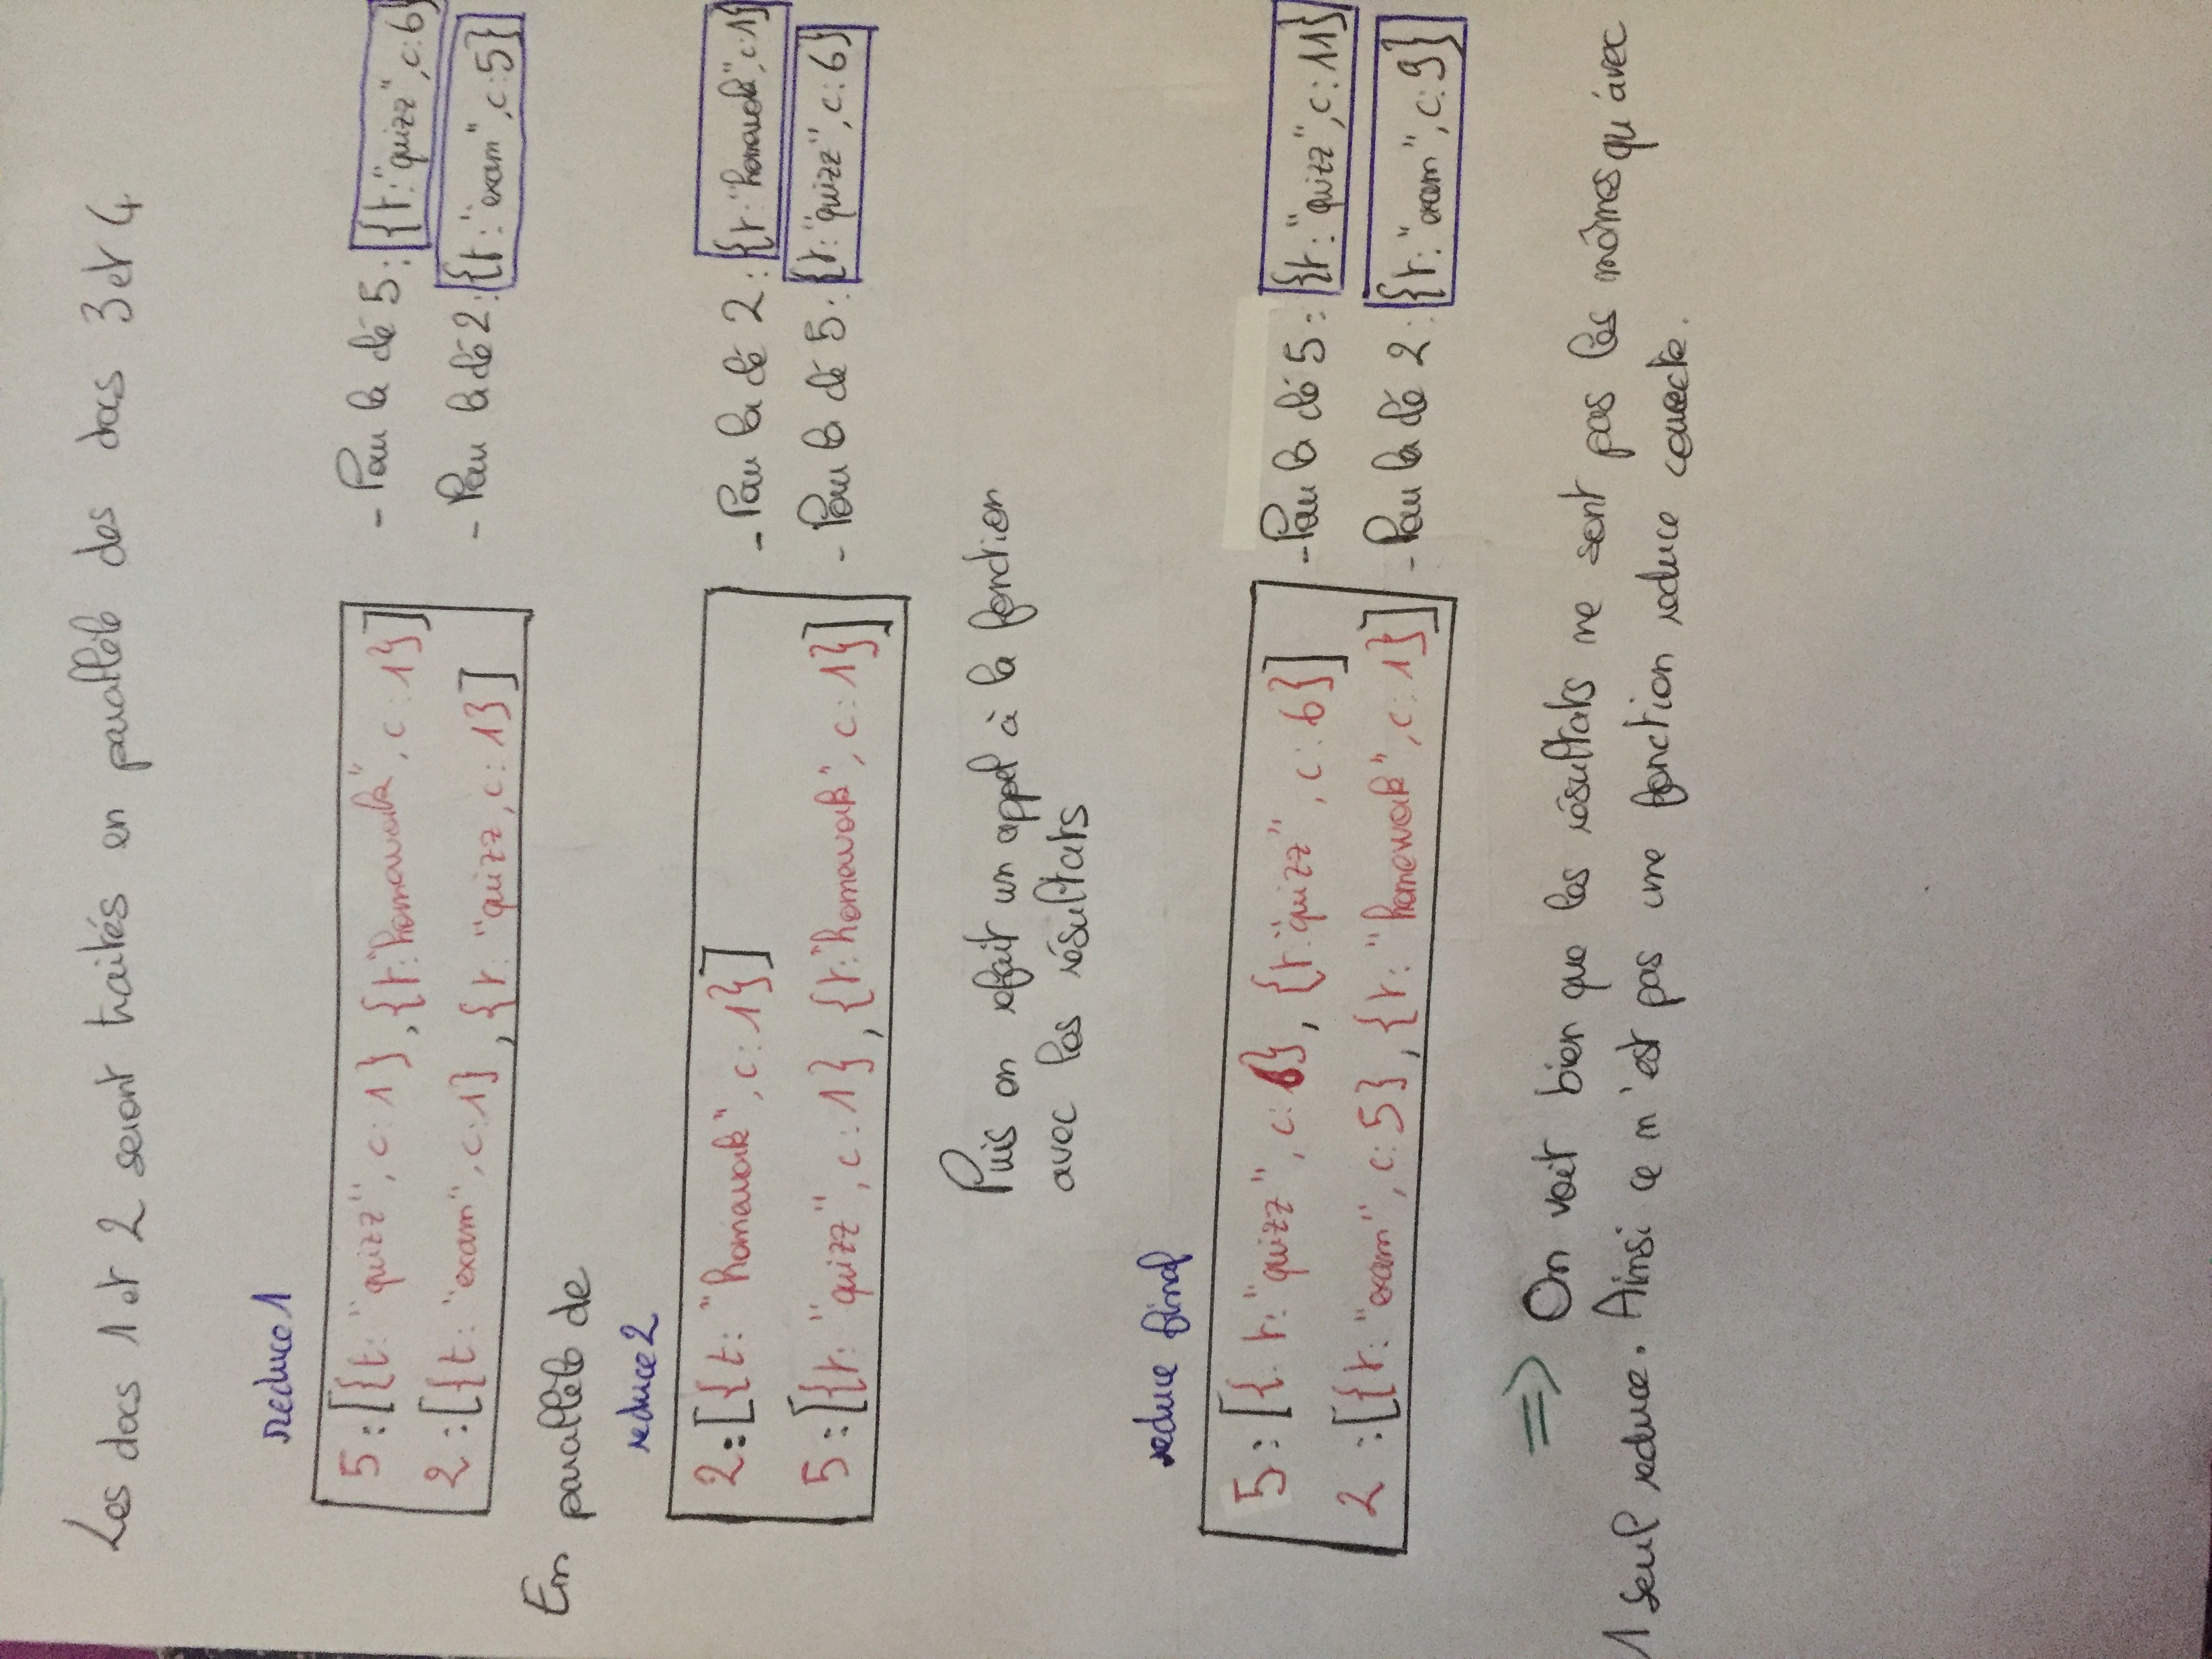 Les docs 1 et 2 seront traités en parallèle des docs 3 et 4
reduce 1
5:[{t: "quizz", c: 1}, {t:"homework", c: 1}]
- Pour la clé 5: {t:"quizz", c:6}
2:[{t: "exam", c:1}, {t: "quizz, c: 1}]
- Pour la clé 2: {t: "exam", c:5}
En parallèle de
reduce 2
2:[{t: "homework", c: 1}]
- Pour la clé 2: {t: "homework", c:1}
5:[{t: "quizz", c: 1}, {t:"homework", c: 1}]
- Pour la clé 5: {t: "quizz", c: 6}
Puis on refait un appel à la fonction
avec les résultats
reduce final
5:[{ t: "quizz", c: 6}, {t:"quizz", c: 6}]
- Pour la clé 5: {t: "quizz", c: 11}
2 :[{t: "exam", c: 5}, {t: "homework", c: 1}]
- Pour la clé 2: {t: "exam", c: 9}
=> On voit bien que les résultats ne sont pas les mêmes qu'avec
1 seul reduce. Ainsi ce n'est pas une fonction reduce correcte.